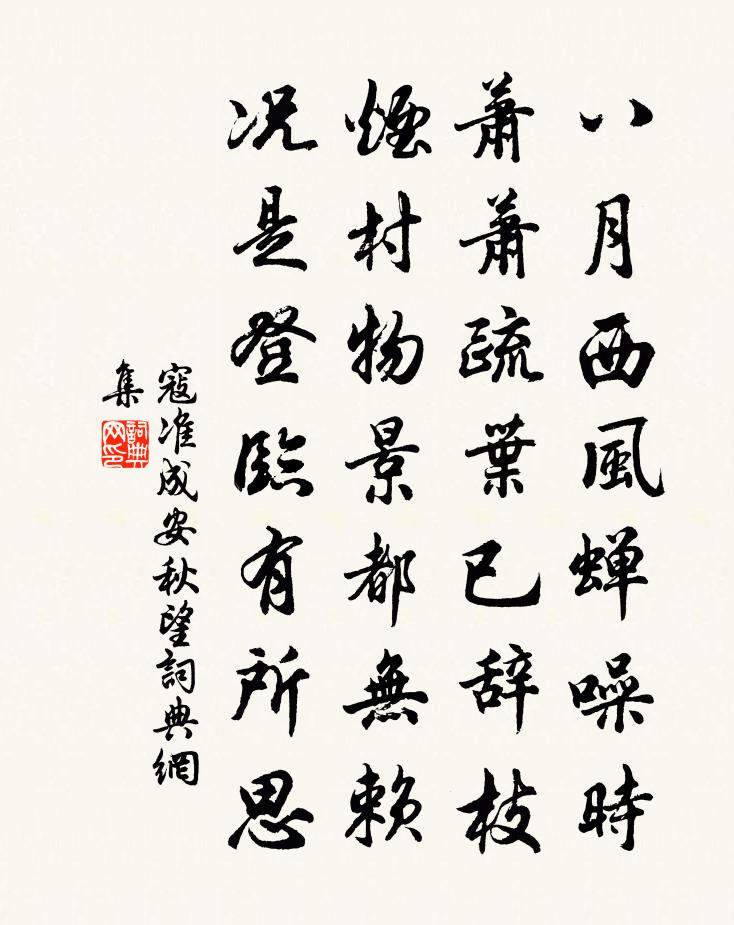 八月西風蝉噪時
蕭蕭疏葉已辞枝
煙村物景都無賴
况是登臨有所思
寇准成安秋望詞典網
集
詞典
网印